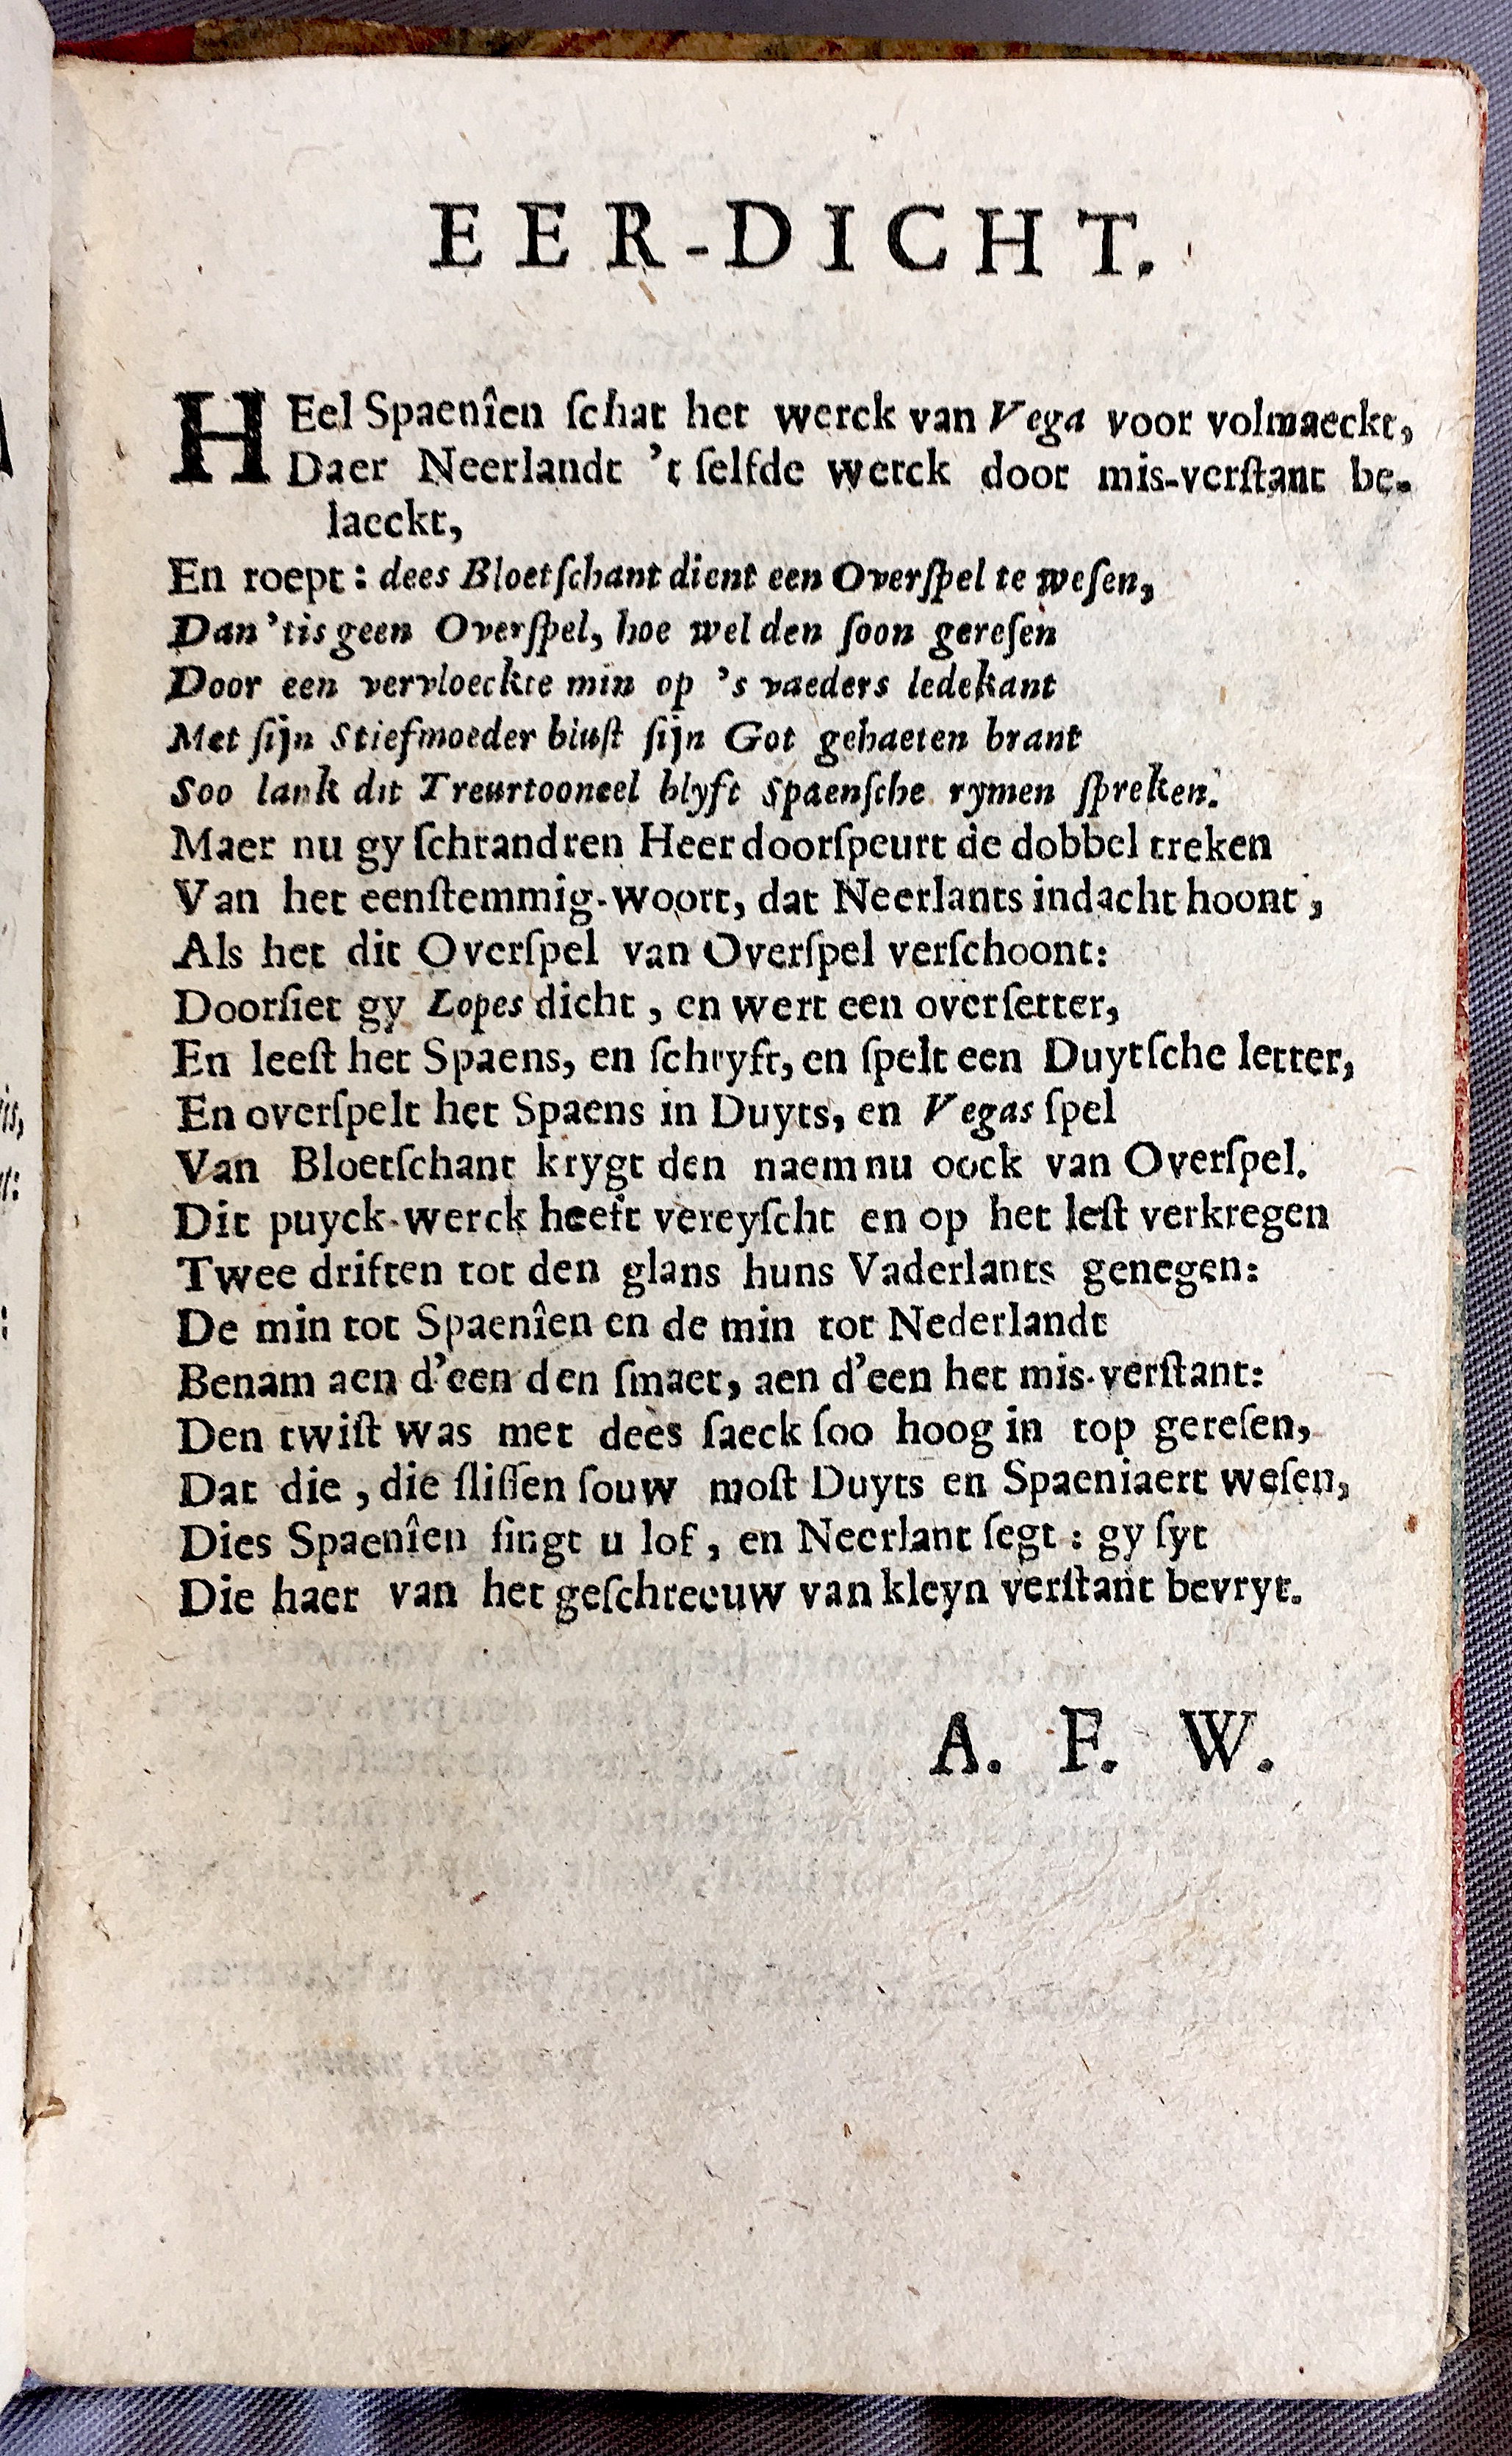 EER-DICHT.
HEel Spaenîen ſchat het werck van Vega voor volmaeckt,
Daer Neerlandt 't ſelfde werck door mis-verſtant be-
laeckt,
En roept: dees Bloetſchant dient een Overſpel te weſen,
Dan 'tis geen Overſpel, hoe wel den ſoon gereſen
Door een vervloeckte min op 's vaeders ledekant
Met ſijn Stiefmoeder bluſt ſijn Got gehaeten brant
Soo lank dit Treurtooneel blyft Spaenſche rymen ſpreken.
Maer nu gy ſchrandren Heer doorſpeurt de dobbel treken
Van het eenſtemmig-woort, dat Neerlants indacht hoont,
Als het dit Overſpel van Overſpel verſchoont:
Doorſiet gy Lopes dicht, en wert een overſetter,
En leeſt het Spaens, en ſchryft, en ſpelt een Duytſche letter,
En overſpelt het Spaens in Duyts, en Vegas ſpel
Van Bloetſchant krygt den naem nu oock van Overſpel.
Dit puyck-werck heeft vereyſcht en op het leſt verkregen
Twee driften tot den glans huns Vaderlants genegen:
De min tot Spaenîen en de min tot Nederlandt
Benam aen d'een den ſmaet, aen d'een het mis-verſtant:
Den twiſt was met dees ſaeck ſoo hoog in top gereſen,
Dat die, die ſliſſen ſouw moſt Duyts en Spaeniaert weſen,
Dies Spaenîen ſingt u lof, en Neerlant ſegt: gy ſyt
Die haer van het geſchreeuw van kleyn verſtant bevryt.
A. F. W.